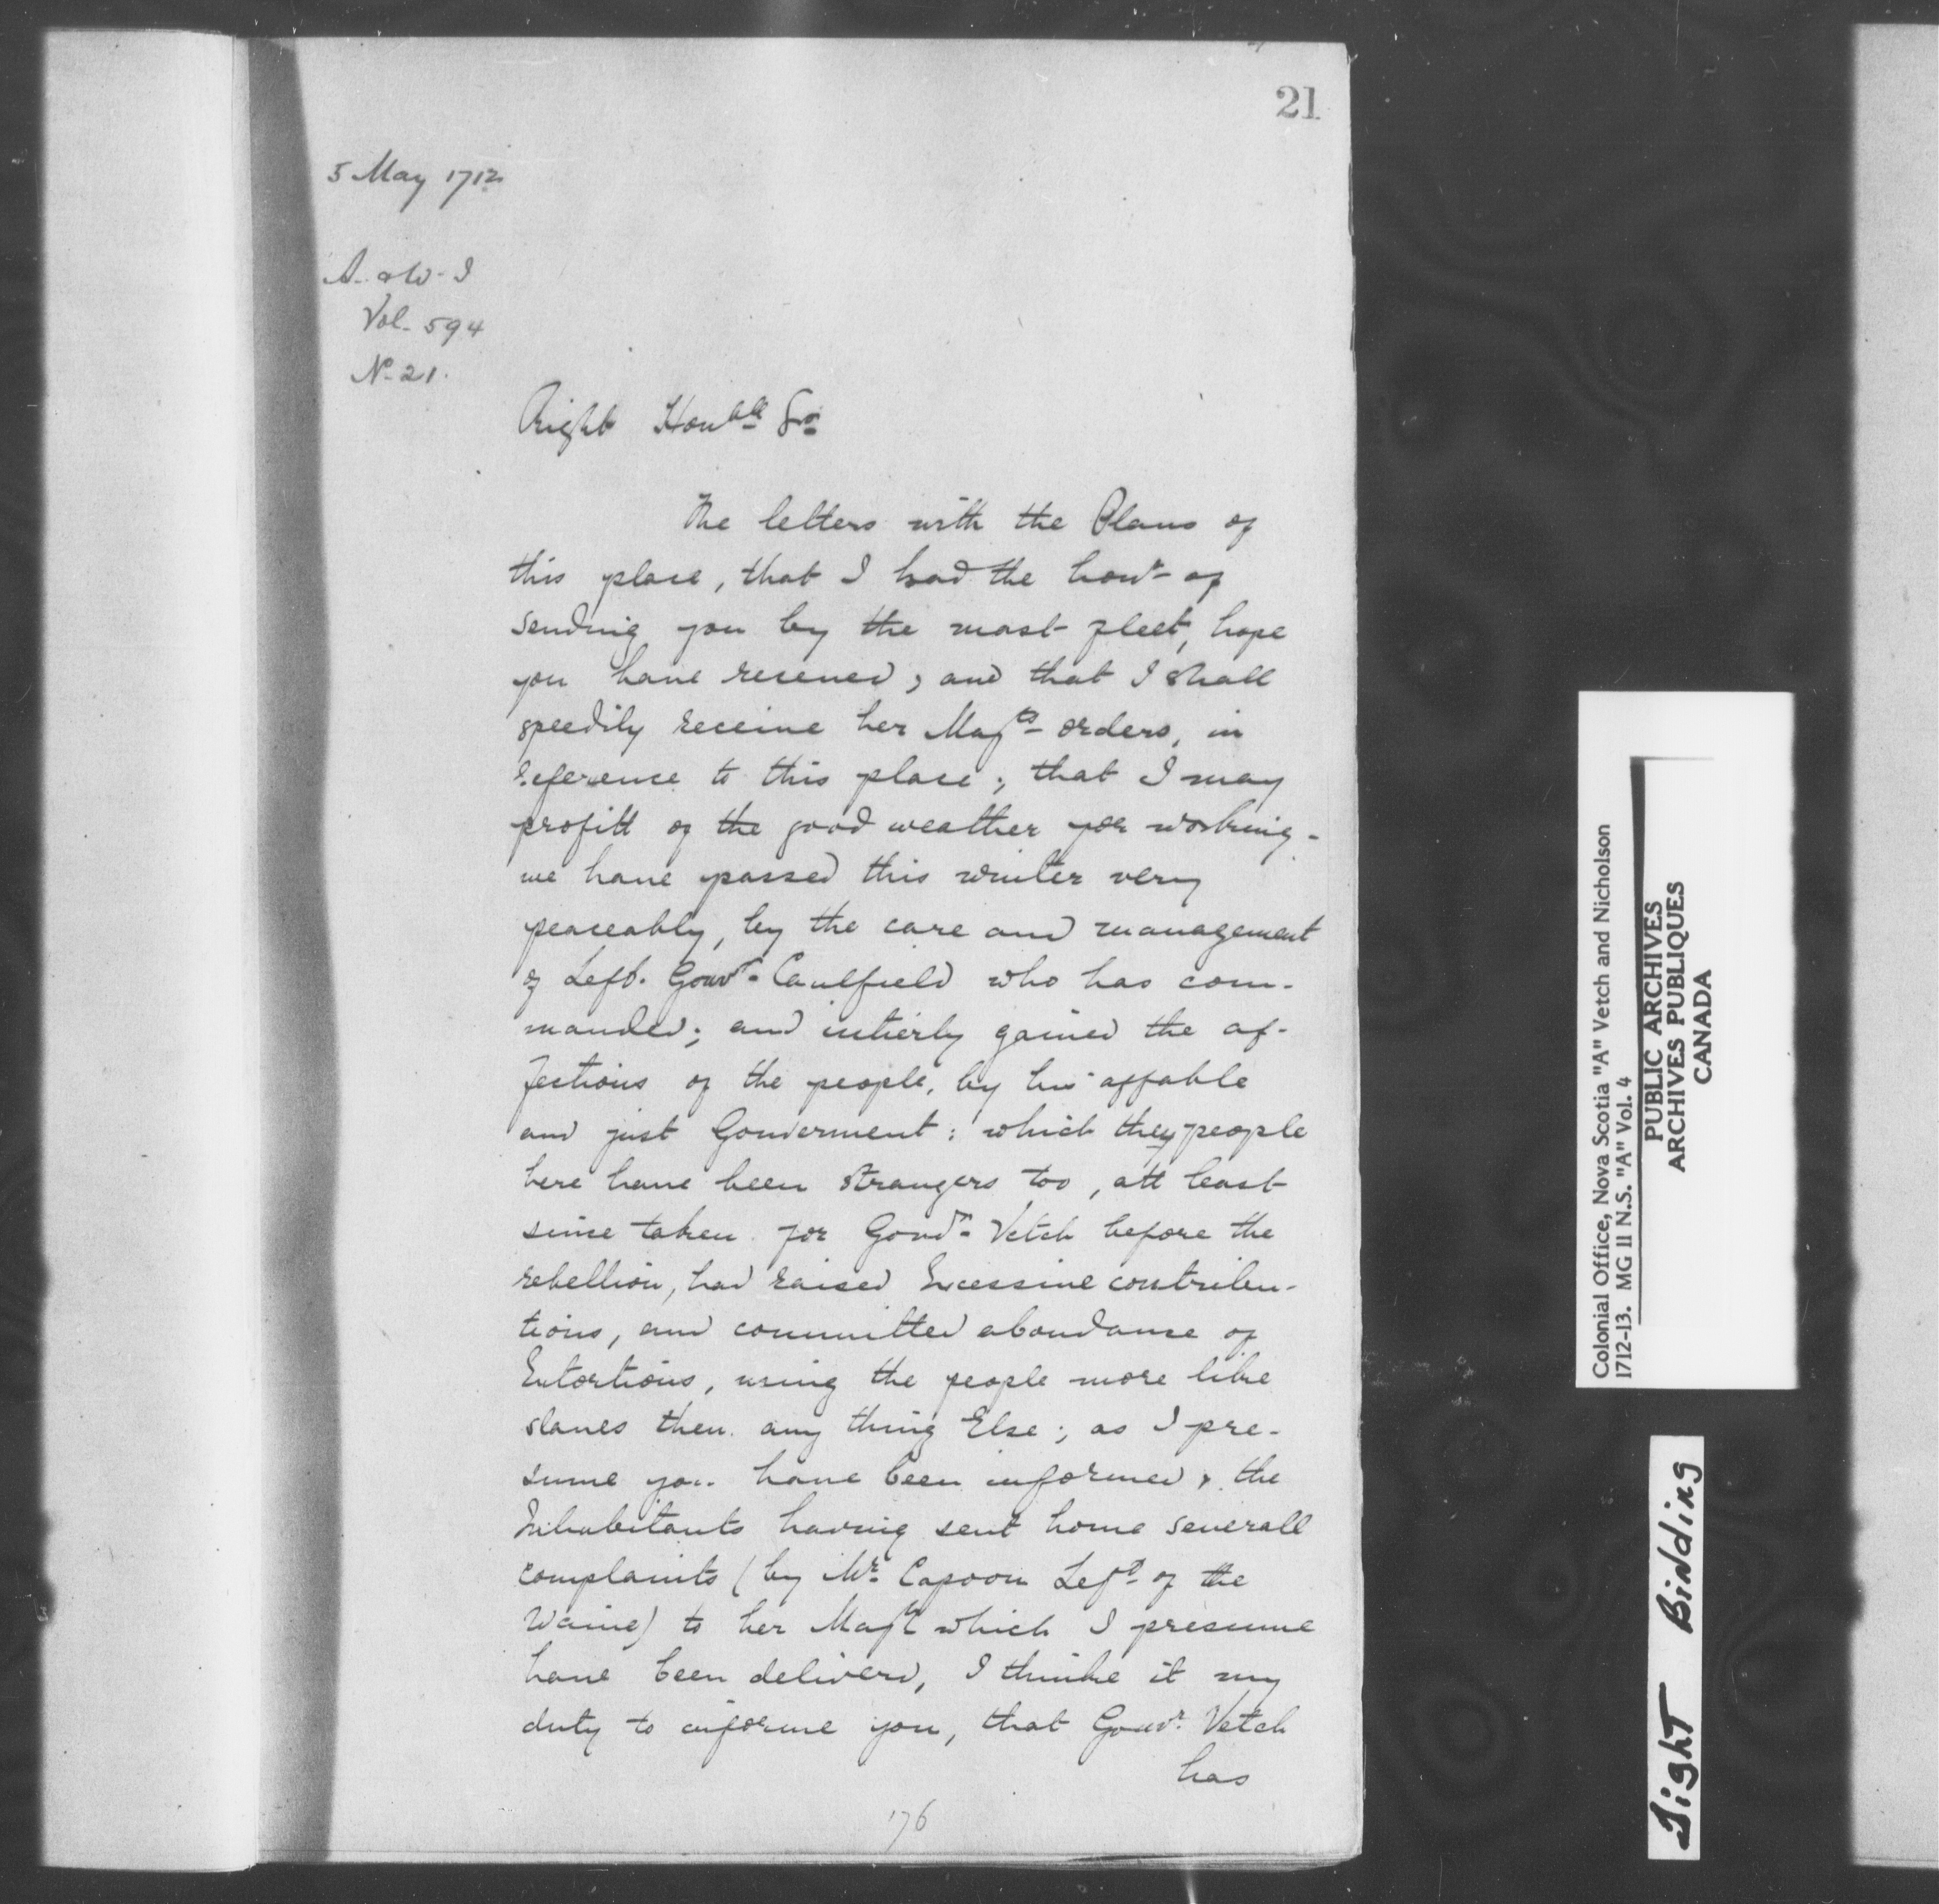 21
5 May 1712
A. & W. I
Vol. 594
No. 21.
Right Honble Sr
The letters with the Plans of
this place, that I had the honr of
sending you by the mast fleet, hope
you have received, and that I shall
speedily receive her Majts orders, in
reference to this place; that I may
profitt of the good weather for working.
we have passed this winter very
peaceably, by the care and management
of Left. Gouvr Caulfield who has com-
manded; and intierly gained the af-
fections of the people, by his affable
and just Gouverment: which they people
here have been strangers too, att least
since taken for Gouvr Vetch before the
rebellion, had raised Excessive contribu-
tions, and committed aboundance of
Extortions, using the people more like
slaves then any thing Else; as I pre-
sume you have been informed, the
Inhabitants having sent home severall
complaints (by Mr Capoon Left of the
) to her Majt which I presume
have been deliverd, I thinke it my
duty to informe you, that Gouvr Vetch
has
176
Colonial Office, Nova Scotia "A" Vetch and Nicholson
1712-13. MG 11 N.S. "A" Vol. 4
PUBLIC ARCHIVES
ARCHIVES PUBLIQUES
CANADA
Tight Binding